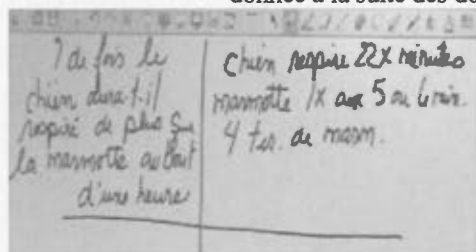 donnée à la suite des de
? de fois le
chien aura t-il
respiré de plus que
la marmotte au bout
d'une heure
chien respire 22x minutes
marmotte 1x aux 5 ou 6 min.
4 de marm.